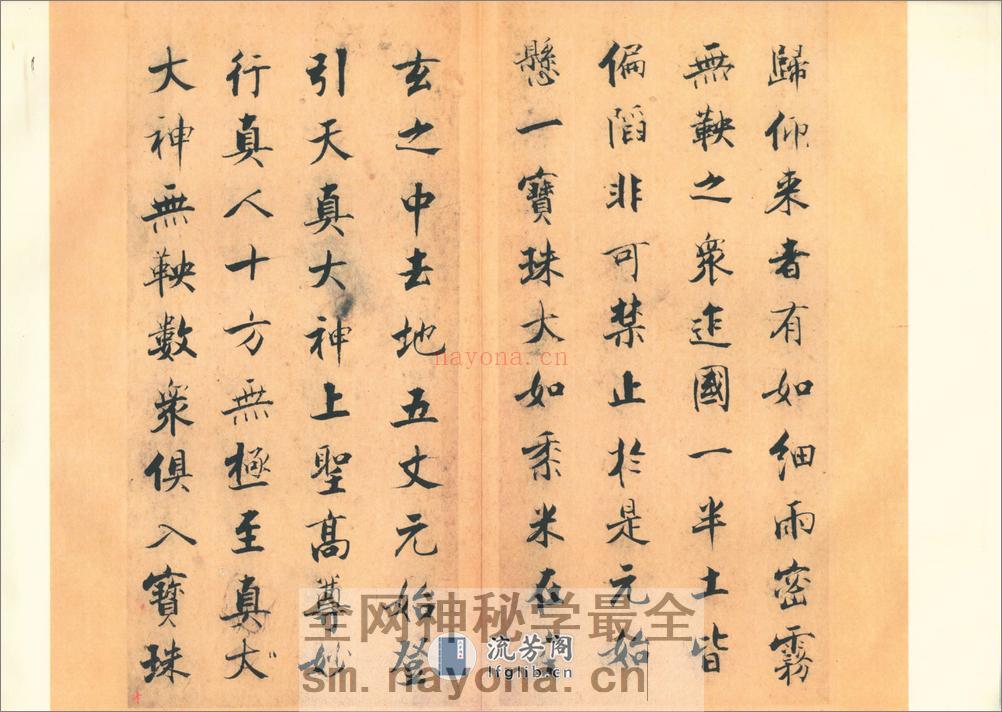 歸仰来者有如細雨密霧
無鞅之衆迮國一半土皆
偏陷非可禁止於是元始
懸一寶珠大如黍米在
玄之中去地五丈元始登
引天真大神上聖髙尊妙
行真人十方無極至真大
大神無鞅數衆俱入寶珠
nayona.cn
全网神秘学最全
流芳阁
lfglib.com
sm.nayona.cn